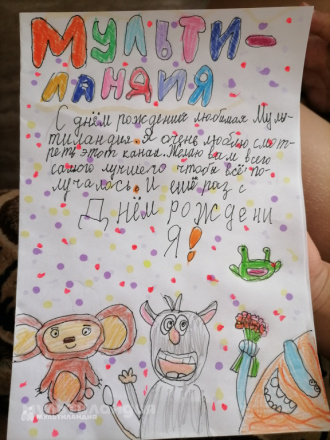 МУЛЬТИ-
ЛАНДИЯ
С днём рождения любимая Муль-
тиландия. Я очень люблю смот-
реть этот канал. Желаю вам всего
самого лучшего чтобы всё по-
лучалось. И ещё раз с
Днём рождени
я!
МУЛЬТИЛАНДИЯ